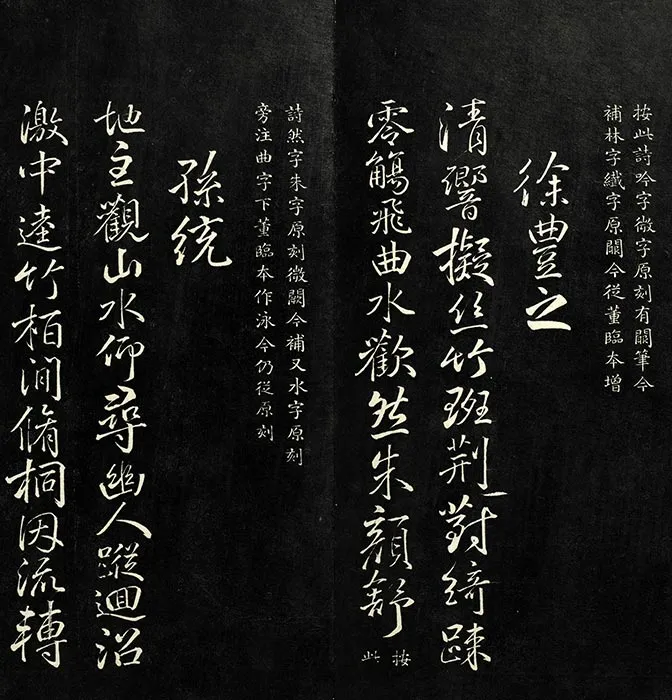 按此詩吟字微字原刻有闕筆今
補林字纖字原闕今從董臨本增
徐豊之
清響擬丝竹班荆對綺疎
零觴飛曲水歡然朱顔舒
按此
詩然字朱字原刻微闕今補又水字原刻
旁注曲字下董臨本作泳今仍從原刻
孫统
地主觀山水仰尋幽人蹤迴沼
激中逵竹栢澗脩桐因流轉